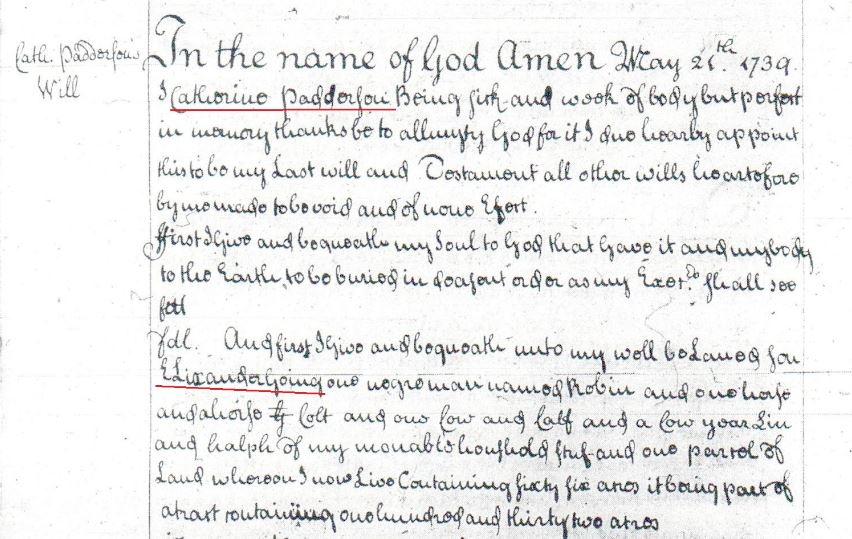 Cath. Padderson's
Will
In the name of God Amen May 21.th 1739.
I Catherine Padderson Being sick and week of body but perfect
in memory thanks be to allmighty God for it I due hearby appoint
this to be my Last will and Testament all other wills heartofore
by me made to be void and of none Efect.
ffirst I Give and bequeath my Soul to God that Gave it and my body
to the Earth to be buried in deasent order as my Exec.rs shall see
fitt
And first I Give and bequeath unto my well beLaved son
ELixander Going one negro man named Robin and one horse
and a horse Colt and one Cow and Calf and a Cow yearLin
and halph of my movable houshold stuf and one parcel of
Land whereon I now Live Containing sixty six acres it being part of
a tract containing one hundred and thirty two acres